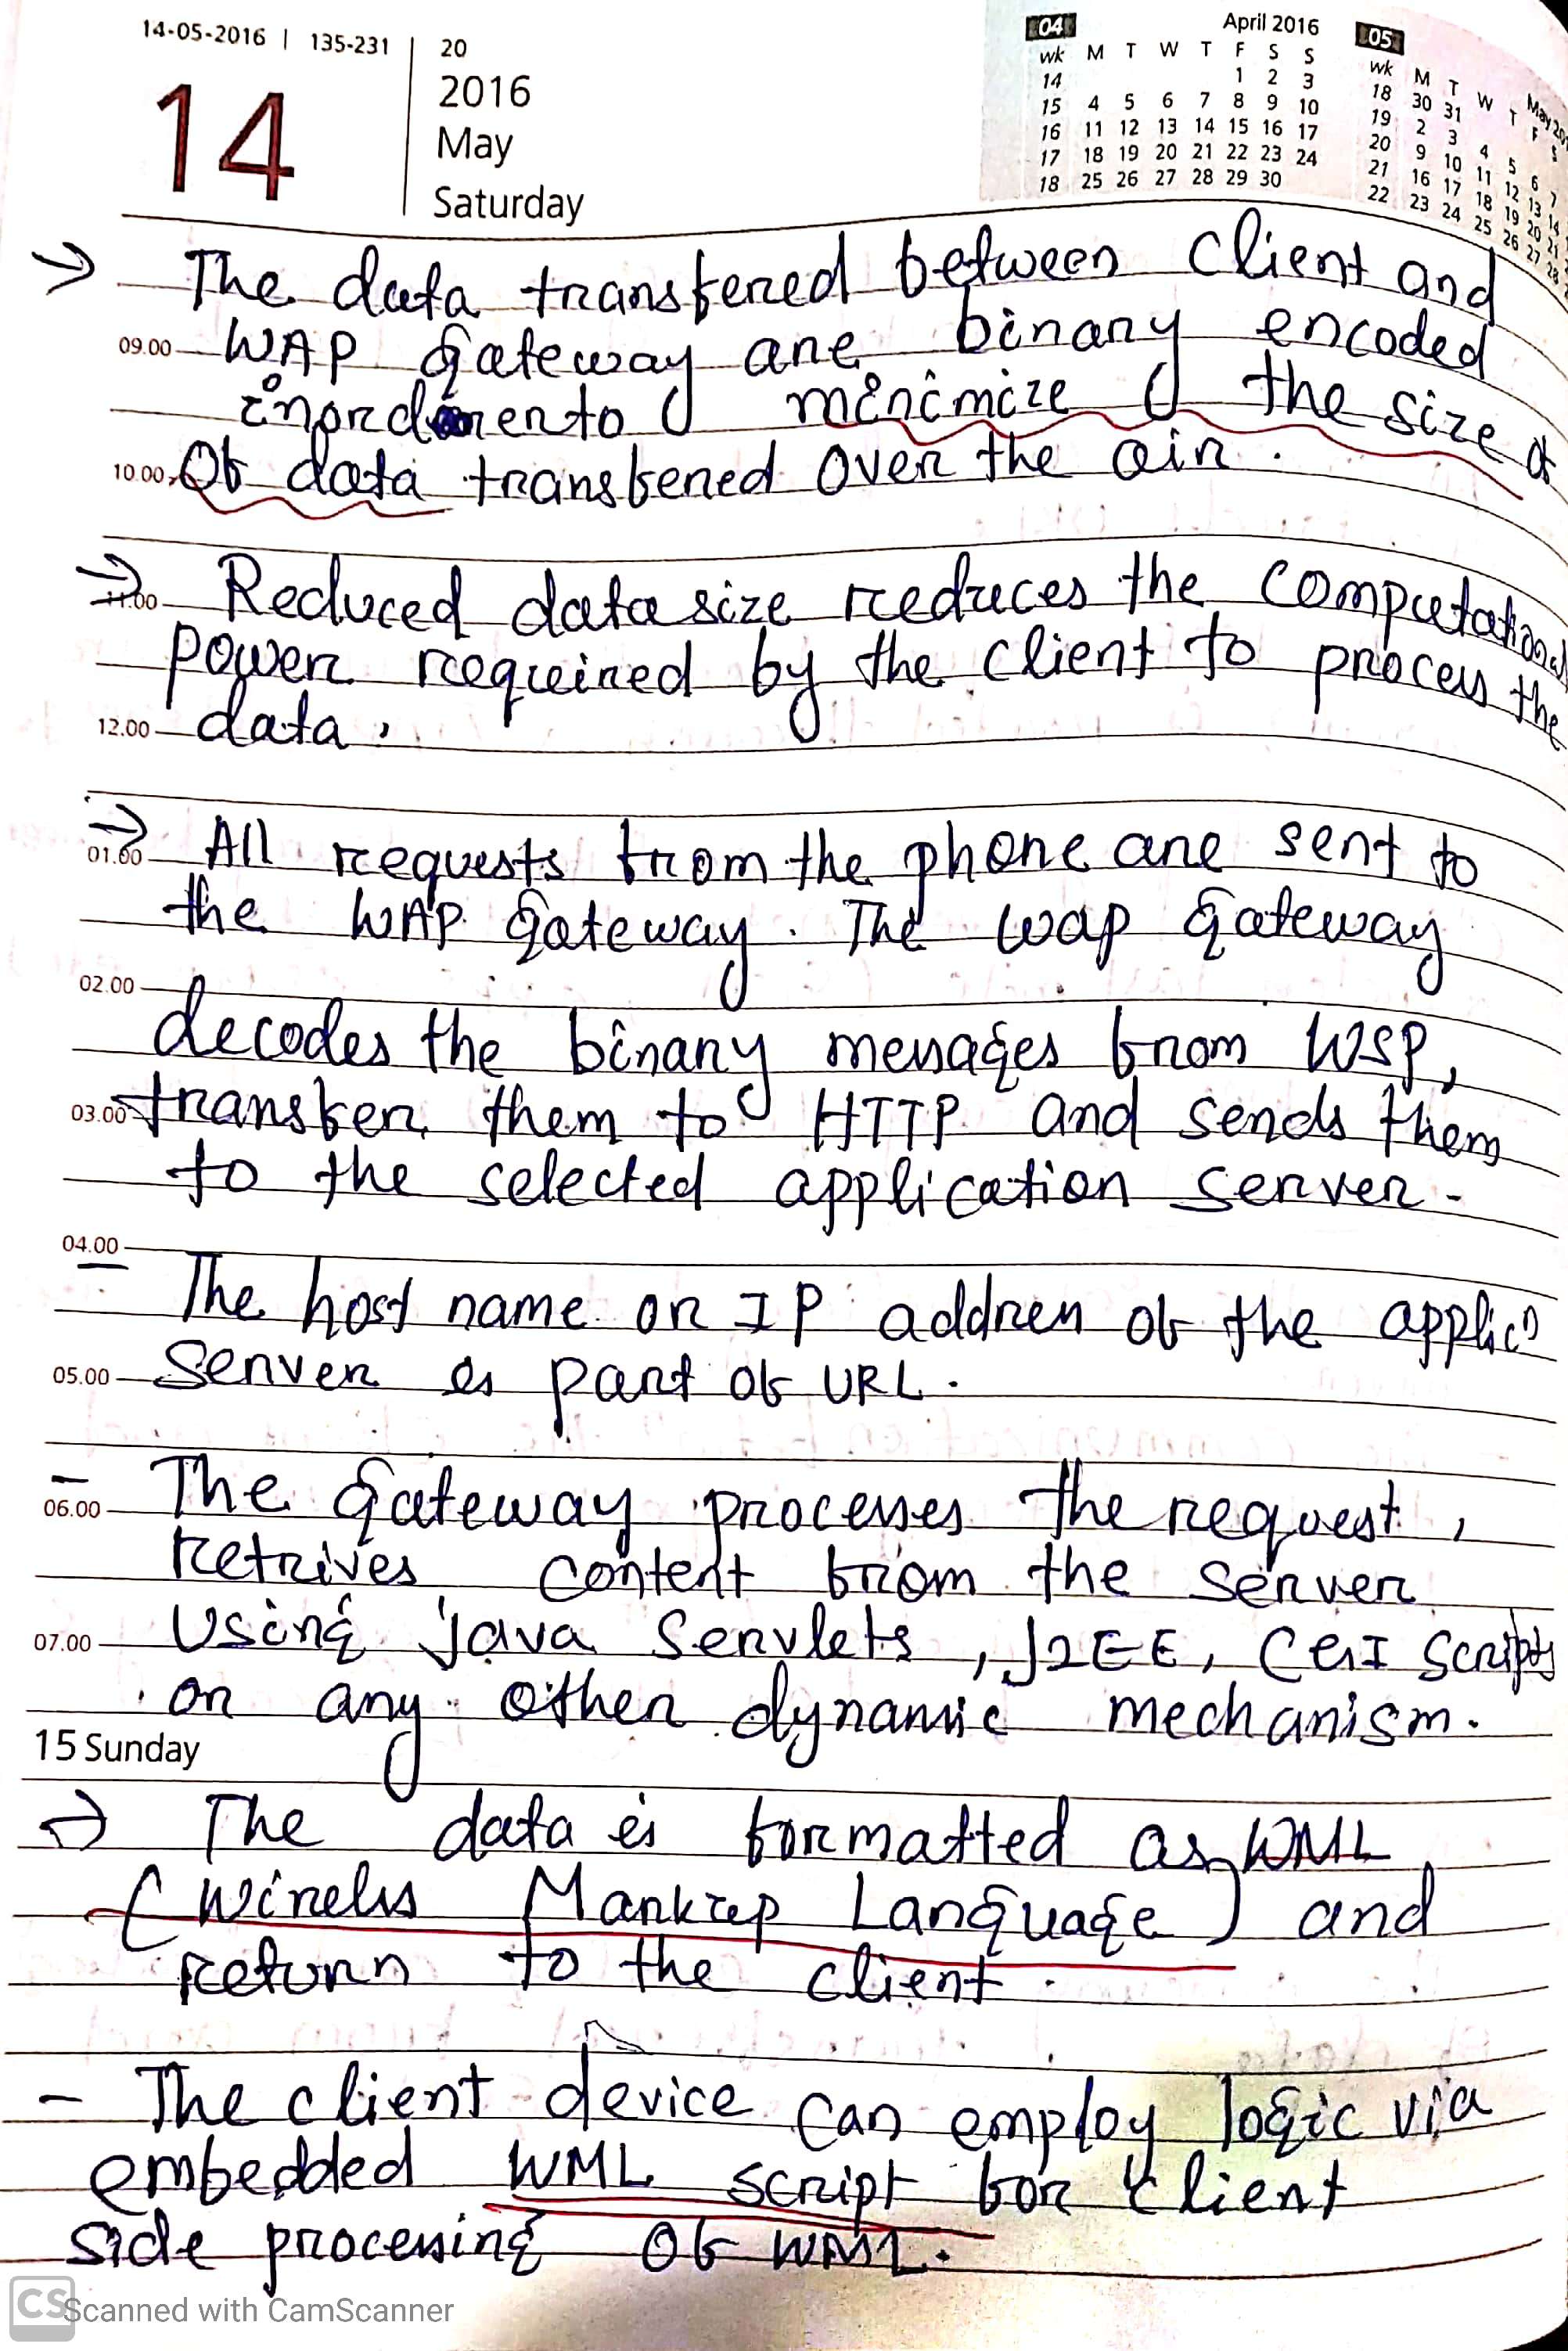 14-05-2016 | 135-231
20
14
2016
May
Saturday
04 April 2016
wk M T W T F S S
14 1 2 3
15 4 5 6 7 8 9 10
16 11 12 13 14 15 16 17
17 18 19 20 21 22 23 24
18 25 26 27 28 29 30
05 May 20
wk M T W T F S
18 30 31
19 2 3 4 5 6 7
20 9 10 11 12 13 14
21 16 17 18 19 20 21
22 23 24 25 26 27 28
→ The data transfered between client and
09.00 WAP gateway are binary encoded
inorder to minimize the size of
10.00 Of data transfered over the air.
→ Reduced data size reduces the computational
11.00
power required by the client to process the
12.00 data.
→ All requests from the phone are sent to
01.00
the WAP gateway. The wap gateway
02.00
decodes the binary messages from WSP,
03.00 transfer them to HTTP and sends them
to the selected application server.
04.00
- The host name or IP address of the applicn
05.00 Server is part of URL.
- The gateway processes the request,
06.00
retrives content from the server
07.00 Using java Servlets, J2EE, CGI Scripts
or any other dynamic mechanism.
15 Sunday
→ The data is formatted as WML
(Wireless Markup Language) and
return to the client.
- The client device can employ logic via
embedded WML script for client
side processing of WML.
CS Scanned with CamScanner